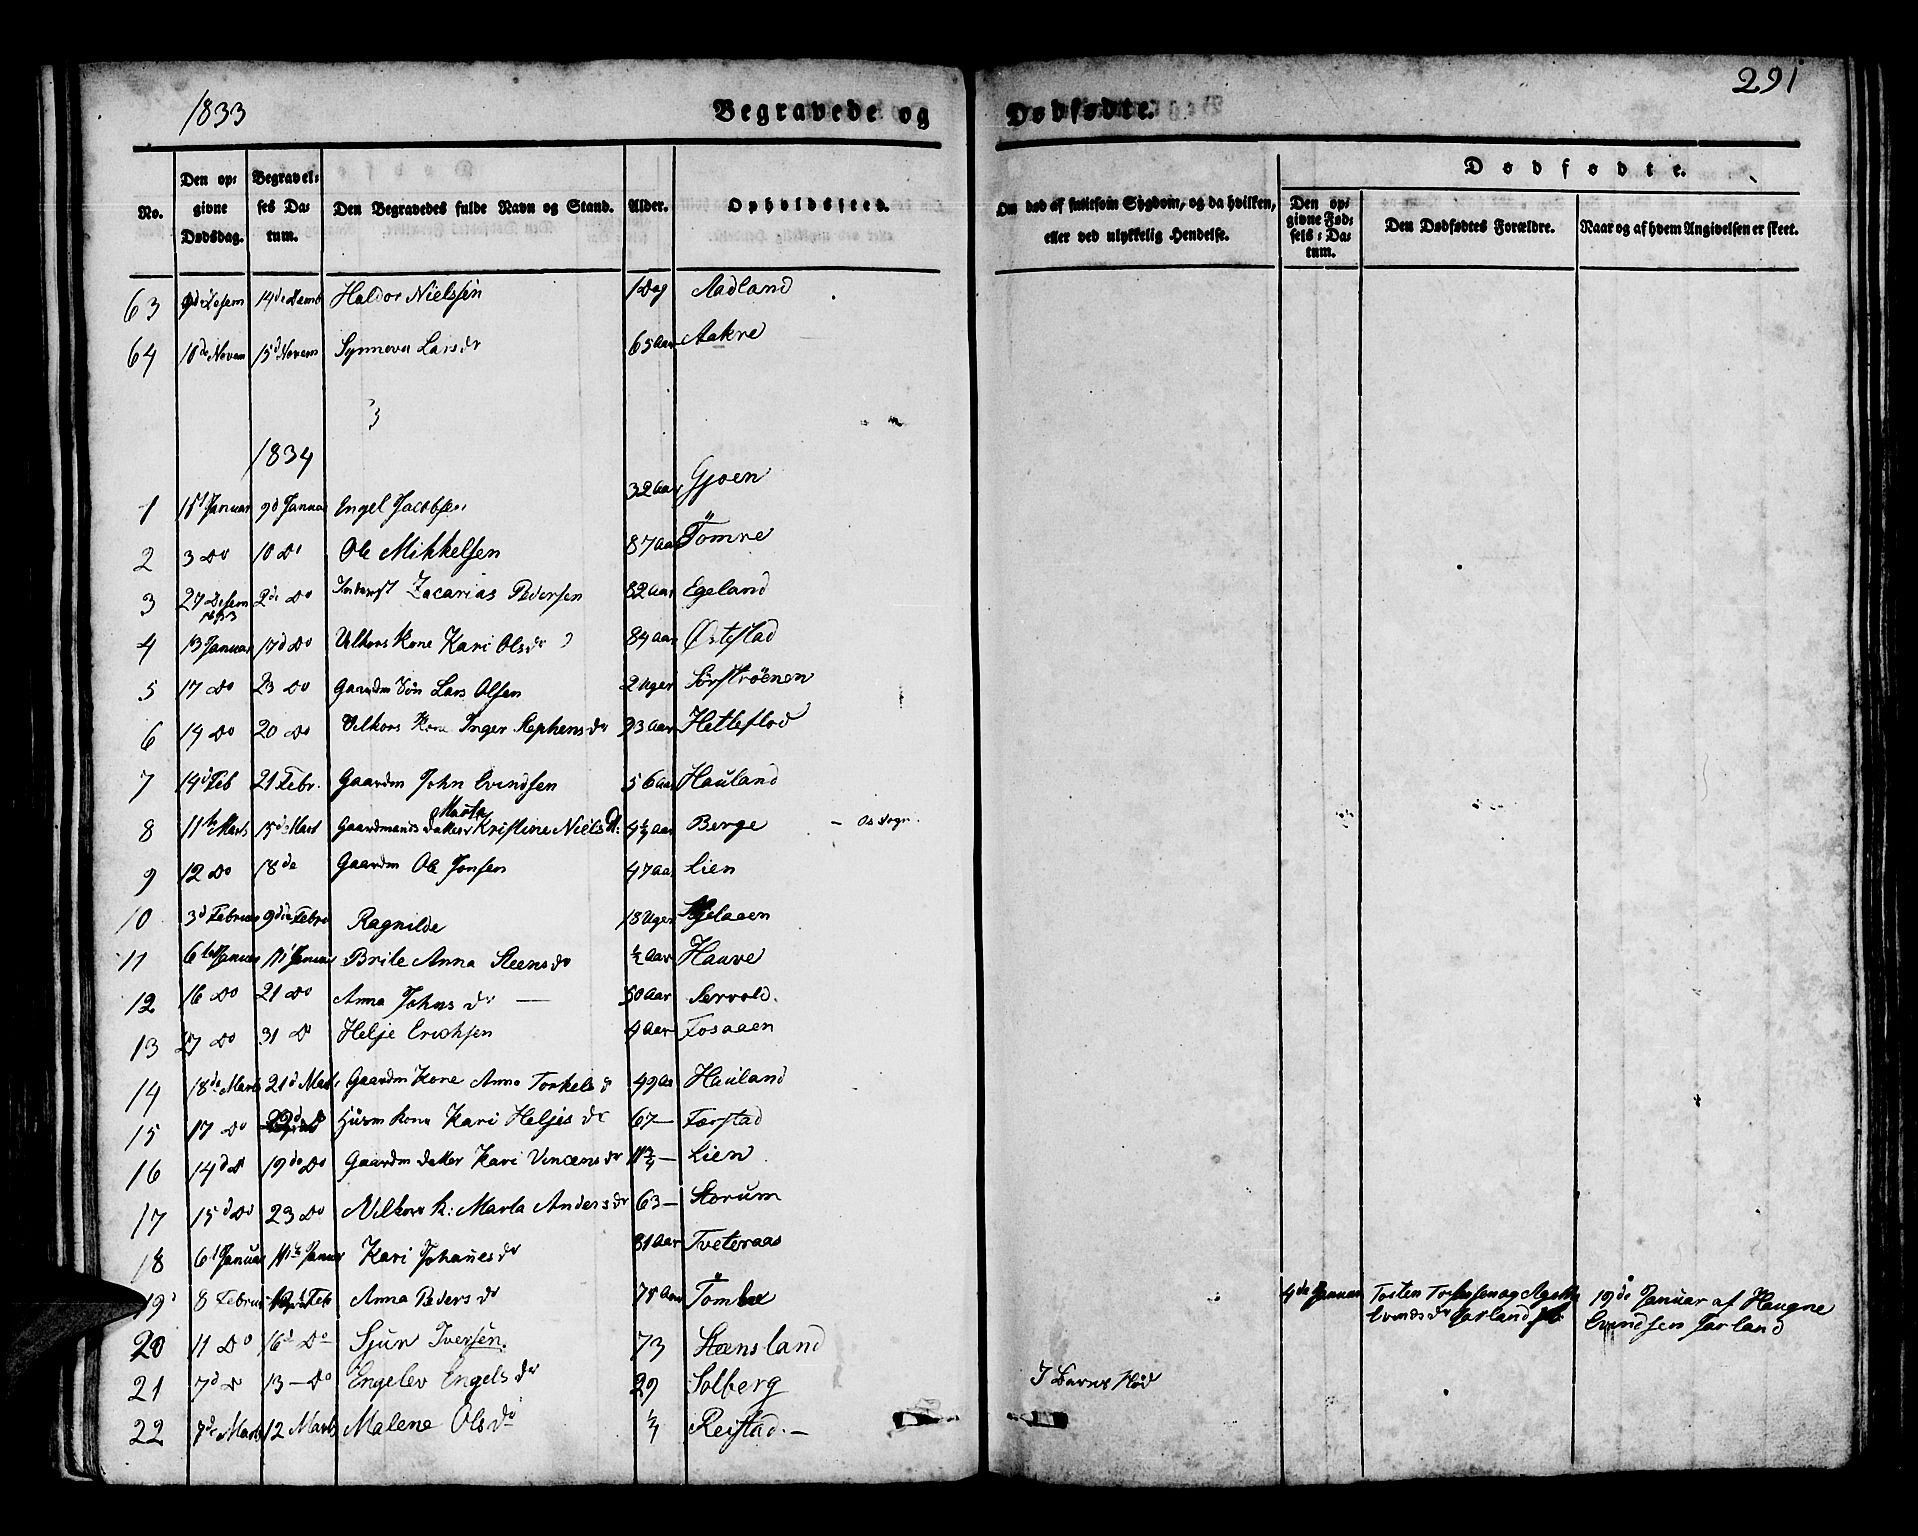 1833 Begravede og Dødfødte. 291
No. Den opgivne Dødsdag. Begravelses Datum. Den Begravedes fulde Navn og Stand. Alder. Opholdssted. Om død af smitsom Sygdom, og da hvilken, eller ved ulykkelig Hendelse. Dødfødte. Den opgivne Fødsels-Datum. Den Dødfødtes Forældre. Naar og af hvem Angivelsen er skeet.
63 Haldor Nielssen 1 Dag Aadland
64 10de Novem 15d Novem Synneva Larsdr 65 Aar Aakre
1834
1 Januar 9d Januar Engel Jacobsen 32 Aar Gjøen
2 3 Do 10 Do Ole Mikkelsen 87 Aar Tömre
3 27 Desem 1833 2de Do Zacarias Pedersen 82 Aar Egeland
4 13 Januar 17d Do Vilkors Kone Kari Olsdr 84 Aar Østestad
5 17 Do 23 Do Gaardm Søn Lars Olsen 2 Uger Sörströenen
6 14 Do 20 Do Vilkors Kone Inger Stephensdr 93 Aar Hetleflod
7 14d Feb 21 Febr. Gaardm John Evindsen 56 Aar Hauland
8 11te Marts 15d Mart Gaardmands datter Marta Kristine Niels Dr. 4½ Aar Berge – Os Sogn
9 12 Do 18de Gaardm Ole Jonsen 47 Aar Lien
10 3d Februar 9de Febr Ragnilde 18 Uger
11 6te Januar 11 Januar Brite Anna Steensdr ½ Aar Hauve
12 16 Do 21 Do Anna Johns dr — 50 Aar Servold.
13 27 Do 31 D Helje Erichsen 4 Aar Fosaaen
14 18de Marts 21d Mart Gaardm Kone Anna Torkelsdr 49 Aar Hauland
15 17 Do Huusm Kone Kari Heljesdr 67 — Færstad
16 14d D 19de Do Gaardm datter Kari Vincensdr — Lien
17 15d Do 23 Do Vilkors K: Marta Andersdr 63 — Storum
18 6t Januar 11te Januar Kari Johanesdr 81 Aar Tveteraas
19 8 Februar Feb Anna Pedersdr 75 Aar 4de Januar Tosten og Evindsdr Jarland 19de Januar af Haagne Evindsen Jarland
20 11 Do 16d Do Sjur Iversen. 73 Steensland
21 7d D 13 – Do Engelev Engelsdr 29 Solberg I Barns Nød
22 7de Marts 12 Marts Malene Olsdr Reistad. –